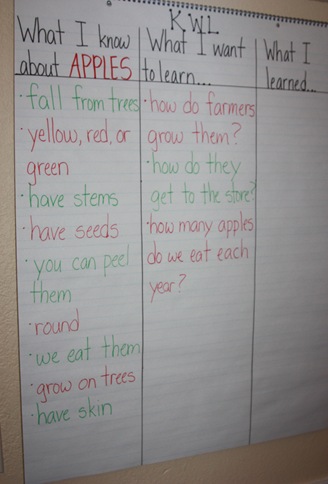 KWL
What I know
about APPLES
· fall from trees
· yellow, red, or
green
· have stems
· have seeds
· you can peel
them
· round
· we eat them
· grow on trees
· have skin
What I want
to learn...
· how do farmers
grow them?
· how do they
get to the store?
· how many apples
do we eat each
year?
What I
learned...